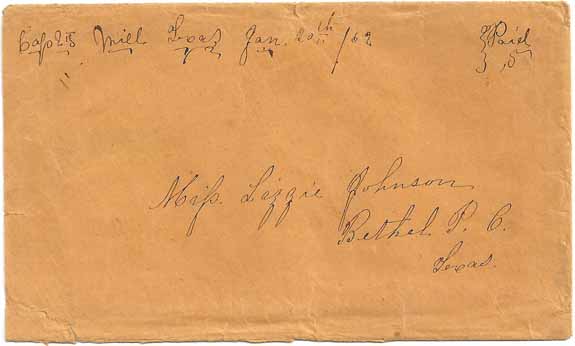 Capt's Mill Texas Jan. 20th /62 Paid
5
Miss. Lizzie Johnson
Bethel P. O.
Texas.